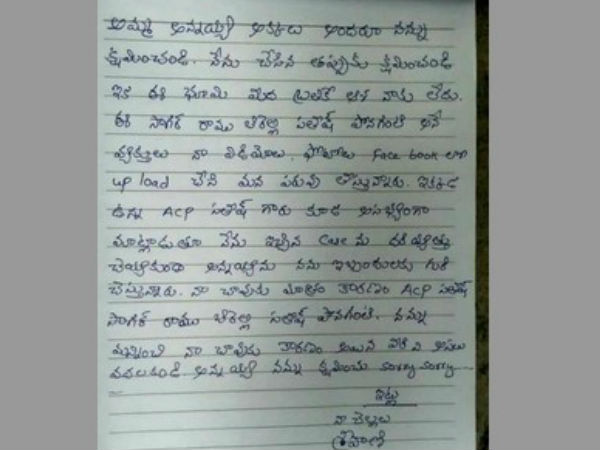 అమ్మ అన్నయ్య అక్కలు అందరూ నన్ను
క్షమించండి. నేను చేసిన తప్పుకు క్షమించండి
ఇక ఈ భూమి మీద బ్రతికే ఆశ నాకు లేదు.
ఈ సాగర్ రాము సతీష్ పోనగంటి అనే
వ్యక్తులు నా వీడియోలు, ఫోటోలు Face book లో
up load చేసి మన పరువు తీస్తున్నారు. ఇక్కడ
ఉన్న ACP సతీష్ గారు కూడ అసభ్యంగా
మాట్లాడుతూ నేను ఇచ్చిన ను దర్యాప్తు
చేయకుండా అన్నయ్యను నను ఇబ్బందులకు గురి
చేస్తున్నారు. నా చావుకు మాత్రం కారణం ACP సతీష్
సాగర్ రాము సతీష్ పోనగంటి. నన్ను
మన్నించి నా చావుకు కారణం అయిన వారిని అసలు
వదలకండి. అన్నయ్య నన్ను క్షమించు sorry sorry
ఇట్లు
నా చెల్లలు